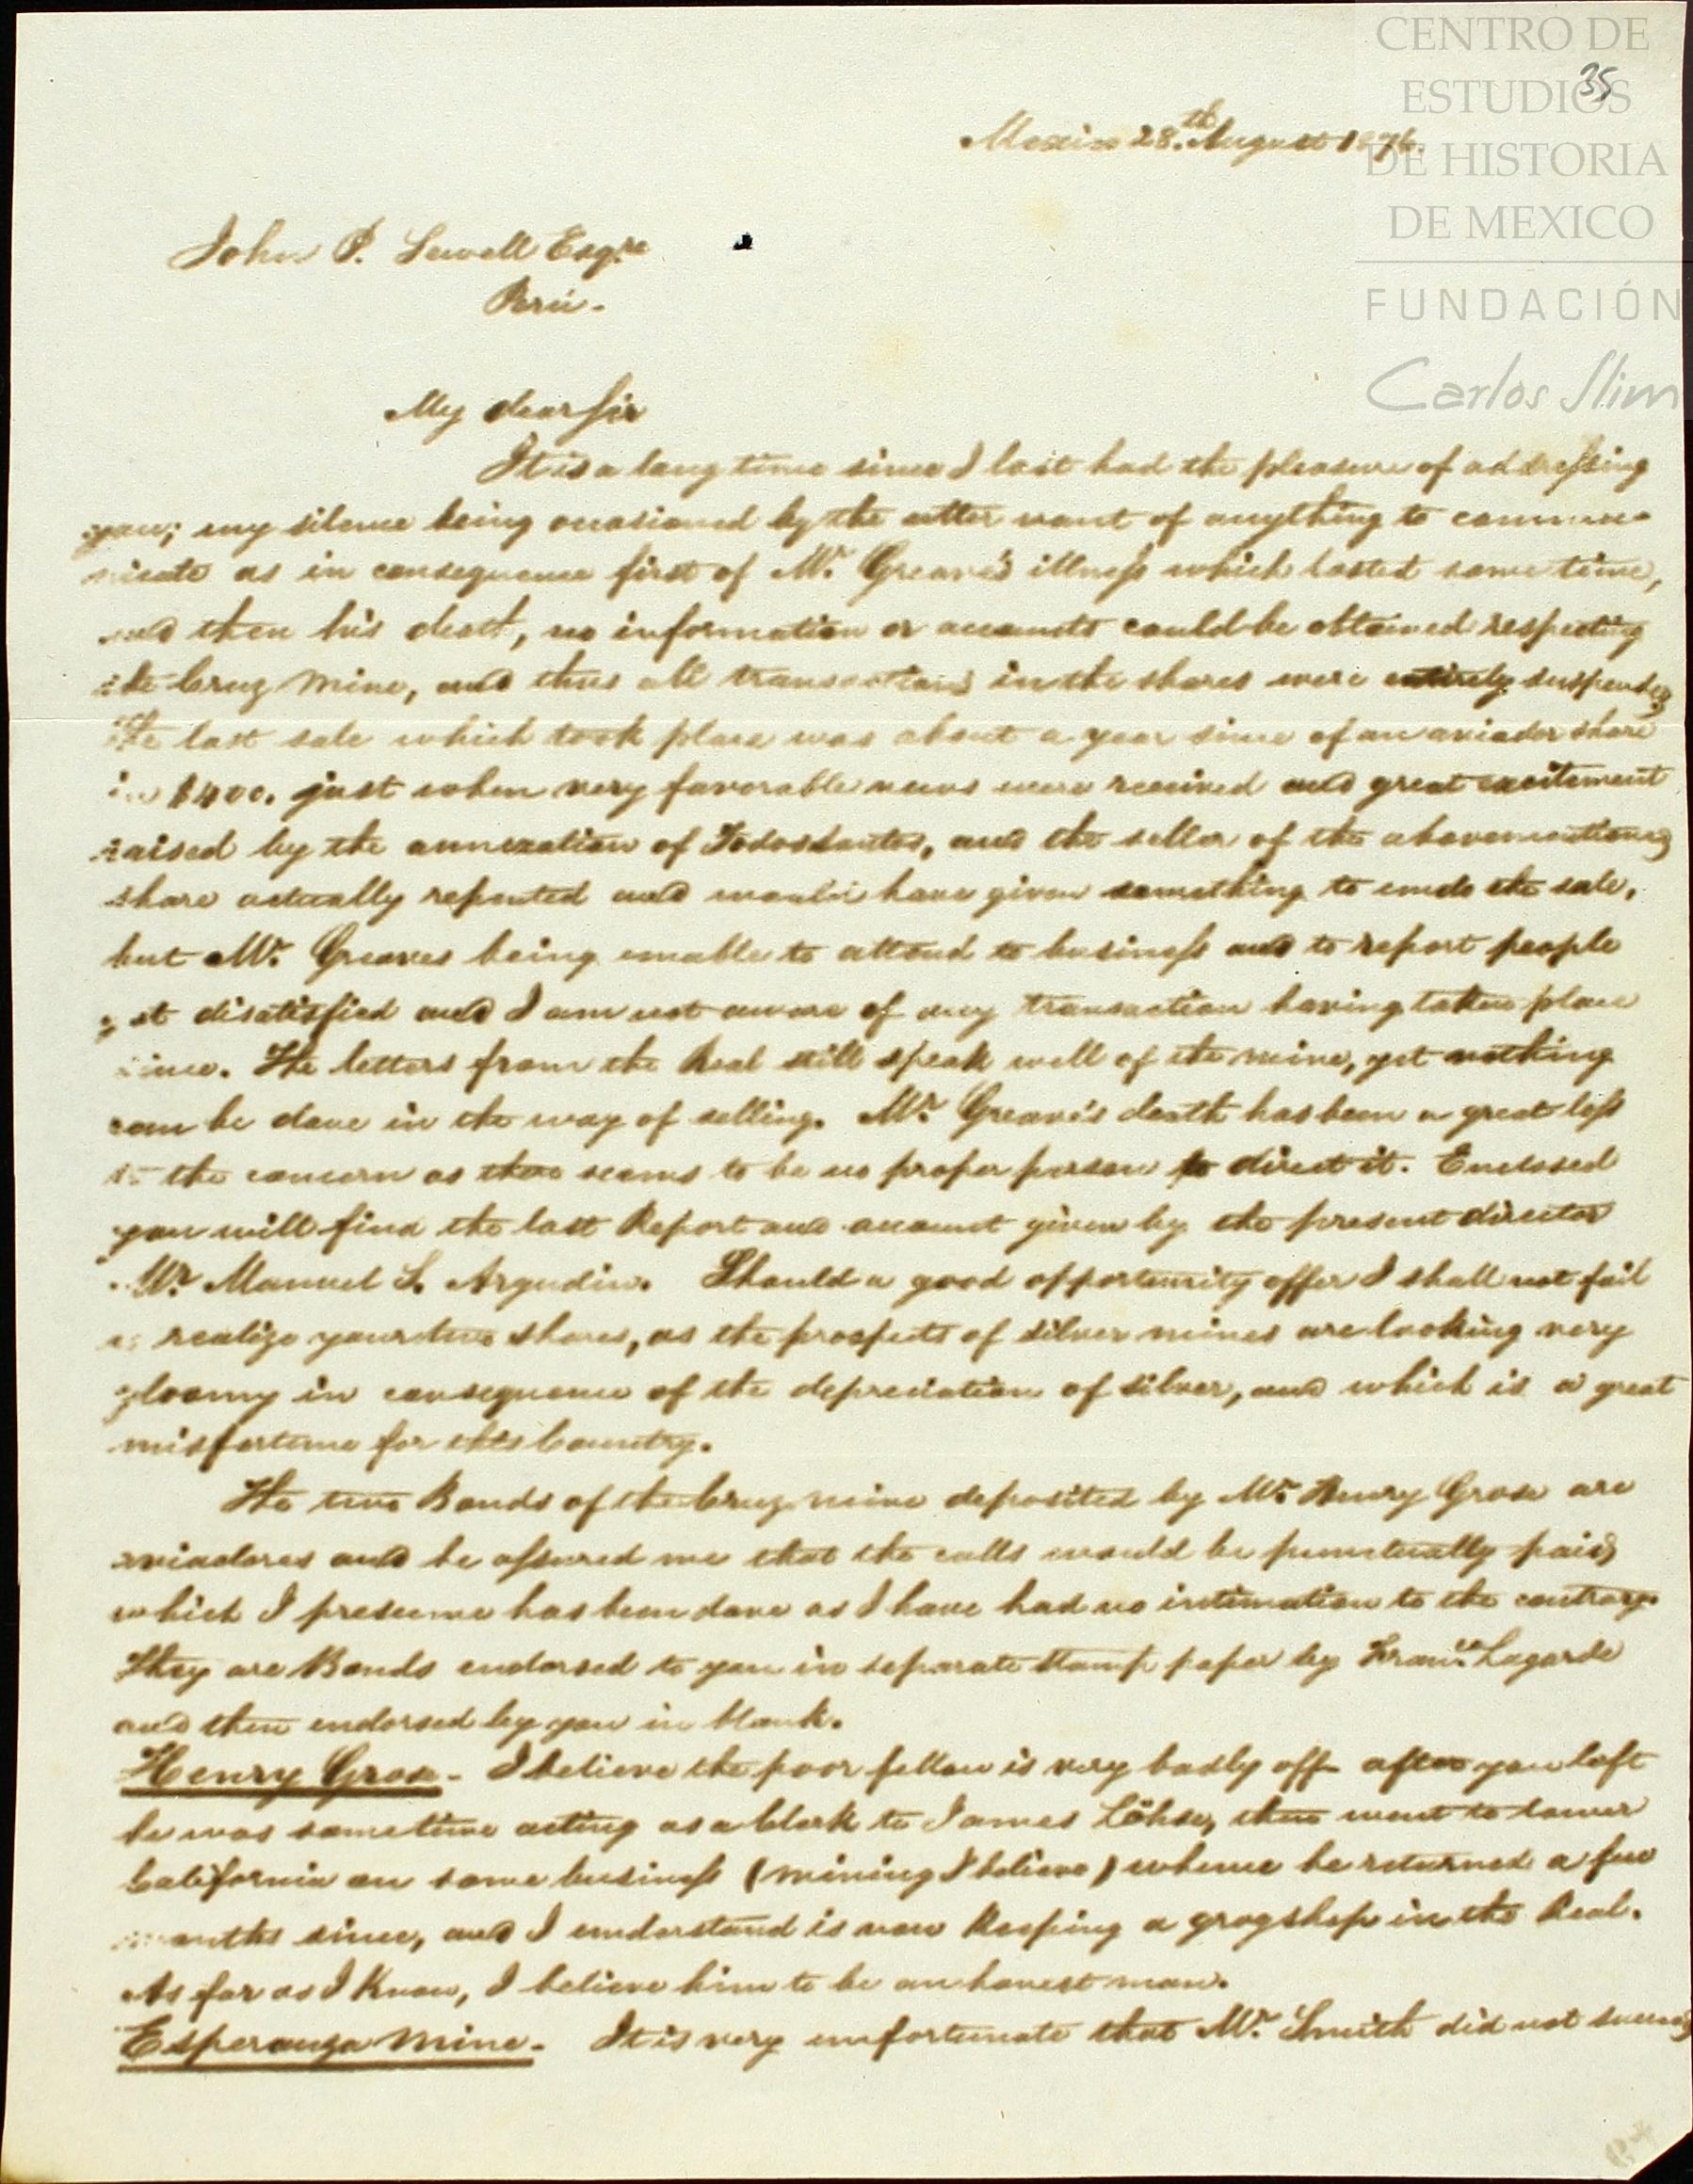 CENTRO DE
ESTUDIOS
DE HISTORIA
DE MEXICO
FUNDACIÓN
Carlos Slim
35
Mexico 28.th August 1876.
John P. Sewell Esqre
Perú.
My dear Sir
It is a long time since I last had the pleasure of addressing
you; my silence being occasioned by the utter want of anything to commu-
nicate as in consequence first of Mr. Greave's illness which lasted some time,
and then his death, no information or accounts could be obtained respecting
the Cruz Mine, and thus all transactions in the shares were entirely suspended
The last sale which took place was about a year since of an aviador share
in $400. just when very favorable news were received and great excitement
raised by the annexation of Todos Santos, and the seller of the abovementioned
share actually repented and would have given something to undo the sale,
but Mr. Greaves being unable to attend to business and to report people
got disatisfied and I am not aware of any transaction having taken place
since. The letters from the Real still speak well of the mine, yet nothing
can be done in the way of selling. Mr. Greave's death has been a great loss
to the concern as there seems to be no proper person to direct it. Enclosed
you will find the last Report and account given by the present director
Mr. Manuel S. Argudin. Should a good opportunity offer I shall not fail
to realize your two shares, as the prospects of silver mines are looking very
gloomy in consequence of the depreciation of silver, and which is a great
misfortune for this Country.
The two Bonds of the Cruz mine deposited by Mr. Henry Grose are
aviadores and he assured me that the calls would be punctually paid
which I presume has been done as I have had no intimation to the contrary.
They are Bonds endorsed to you in separate stamp paper by Franco. Lagarde
and then endorsed by you in blank.
Henry Grose - I believe the poor fellow is very badly off - after you left
he was sometime acting as a Clerk to James Löhse, then went to Lower
California on some business (mining I believe) whence he returned a few
months since, and I understand is now Keeping a grogshop in the Real.
As far as I Know, I believe him to be an honest man.
Esperanza Mine. - It is very unfortunate that Mr. Smith did not succeed